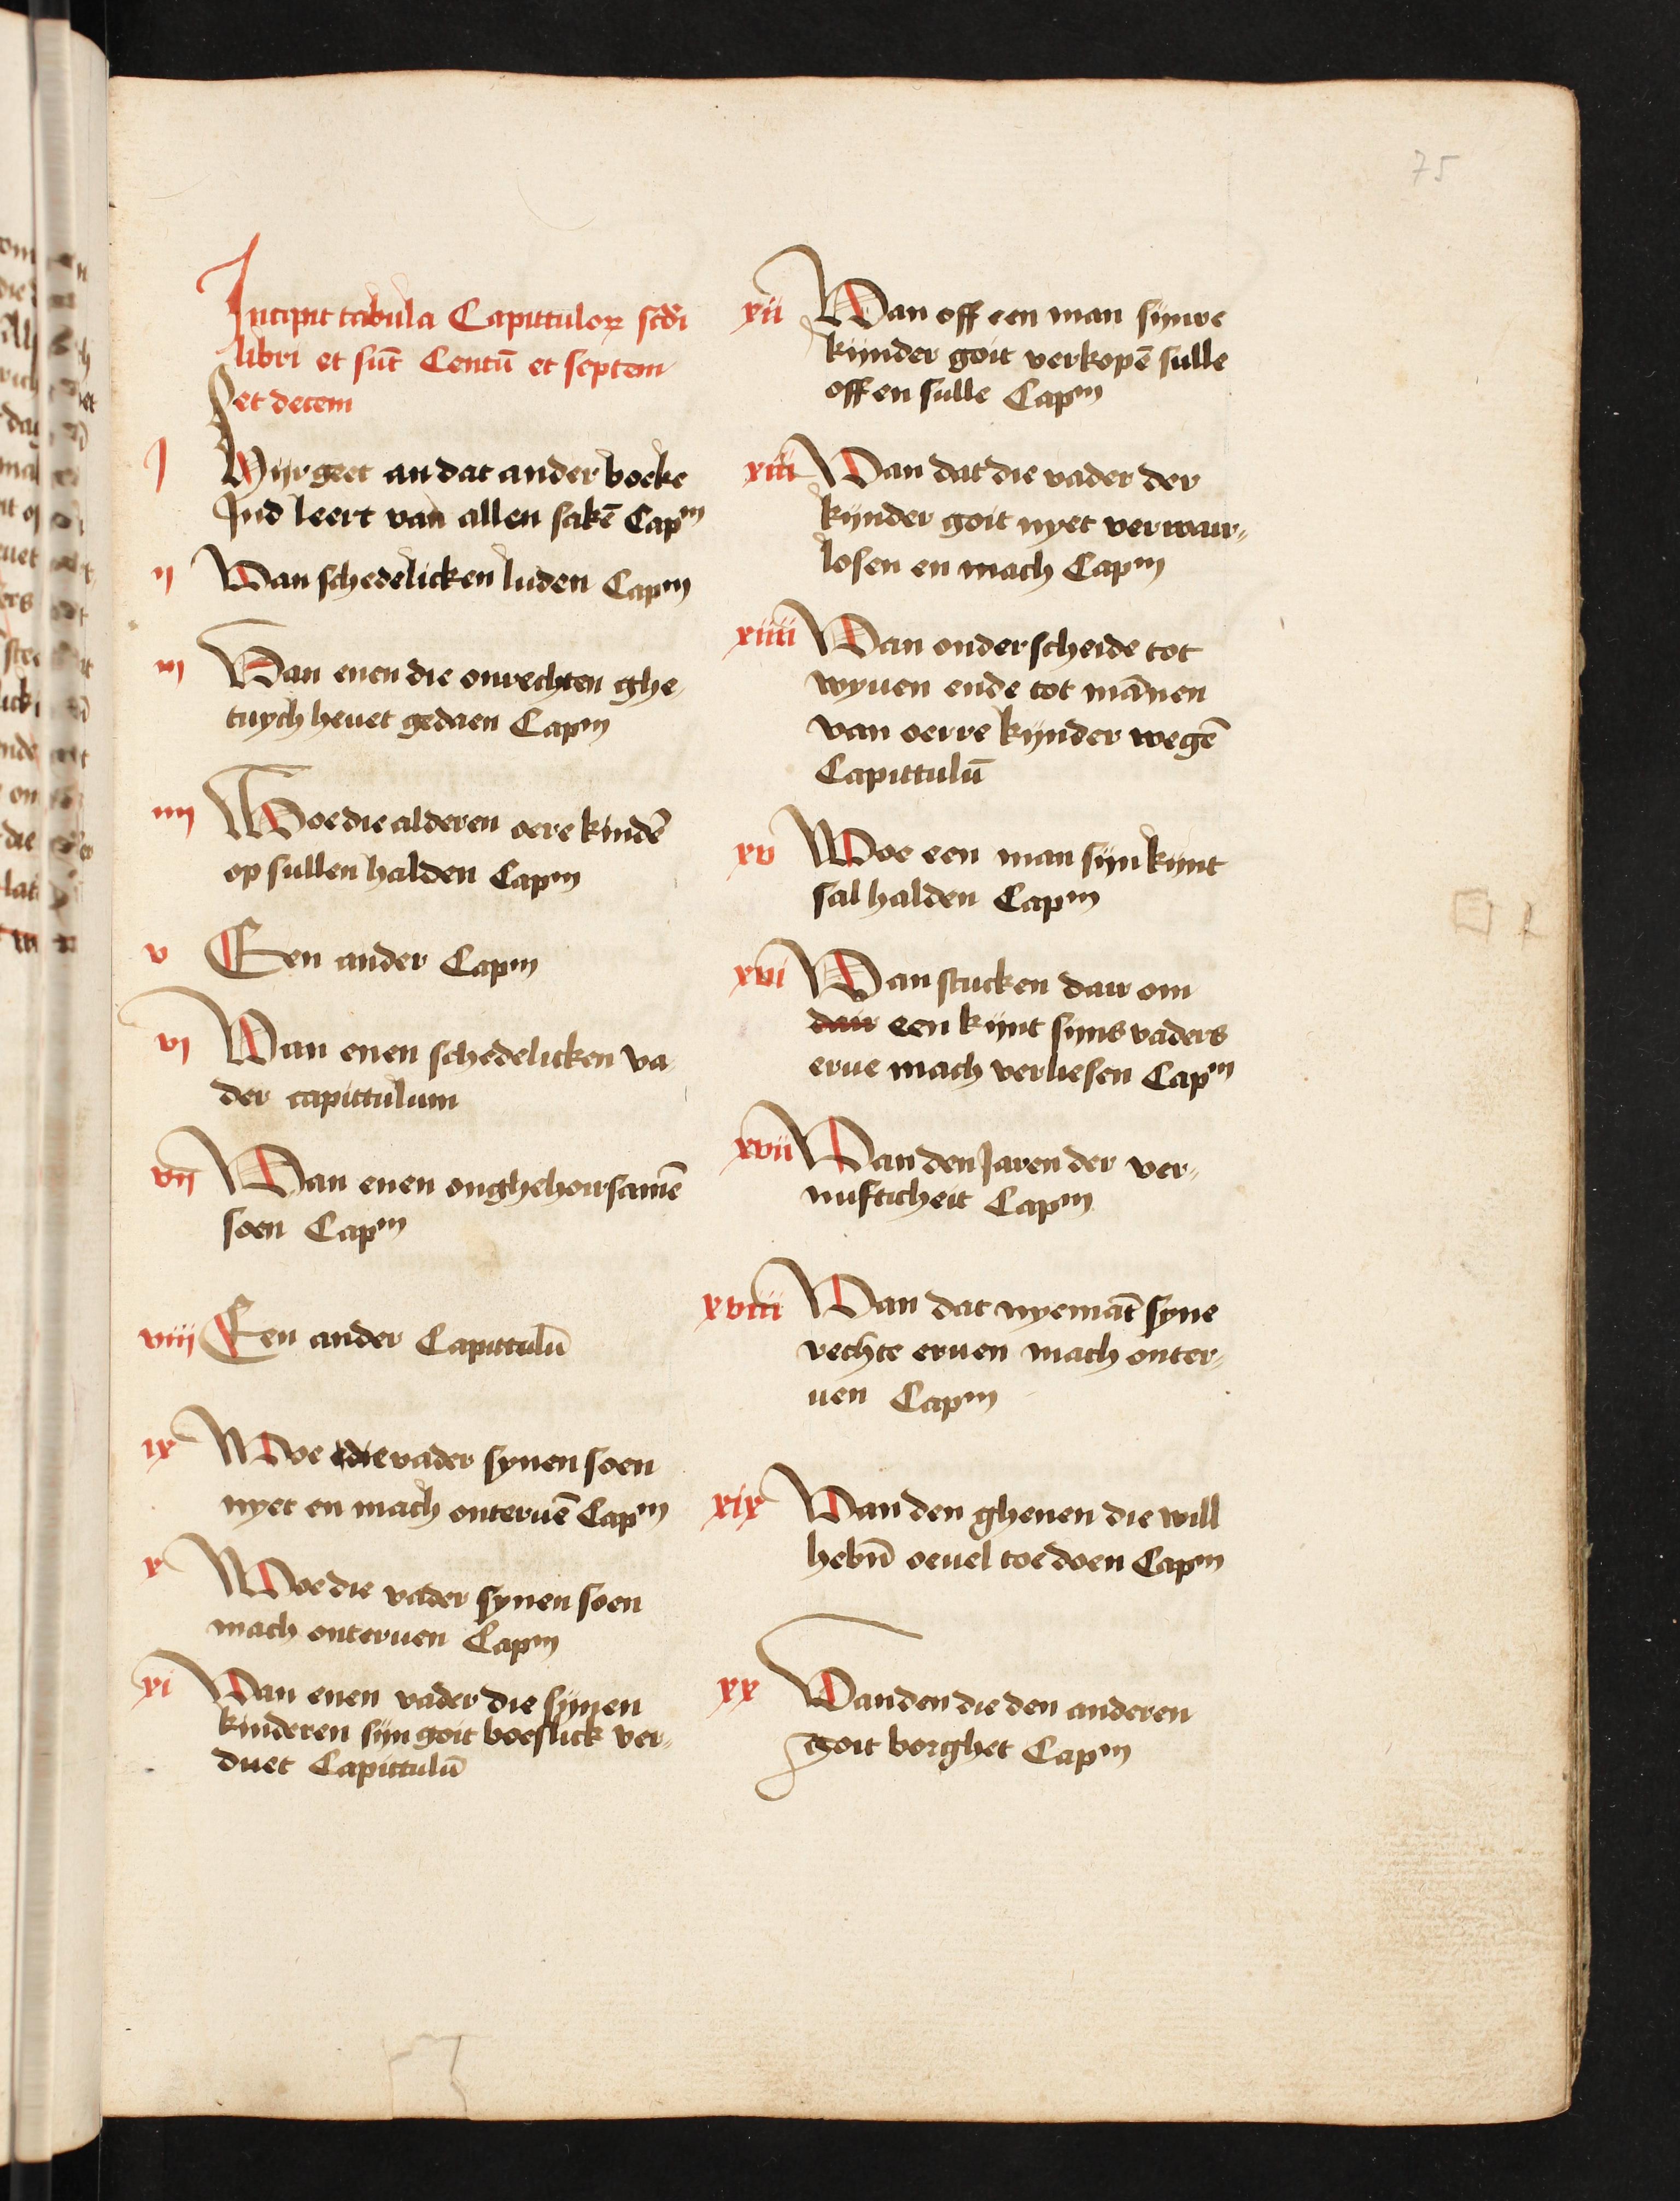 75
Incipit tabula Capittuloꝝ scdi
libri et sūt Centū et septem
et decem
j Hijr geet an dat ander boeke
Ind leert van allen sakē Capᵐ
ij Van schedelicken luden Capᵐ
iij Van enen die onrechten ghe„
tuych heuet gedaen Capᵐ
iiij Woe die alderen oere kindē
op sullen halden Capᵐ
v Een ander Capᵐ
vj Van enen schedelicken va
der capittulum
vij Van enen onghehoirsamē
soen Capᵐ
viij Een ander Capittulū
ix Woe die vader synen soen
nyet en mach onteruē Capᵐ
x Woe die vader synen soen
mach onteruen Capᵐ
xi Van enen vader die sijnen
kinderen sijn goit boeslick ver„
duet Capittulū
xii Van off een man sijnre
kijnder goit verkopē sulle
off en sulle Capᵐ
xiii Van dat die vader der
kijnder goit nyet verwaer„
losen en mach Capᵐ
xiiii Van onderscheide tot
wyuen ende tot mānen
van oerre kijnder wegē
Capittulū
xv Woe een man sijn kijnt
sal halden Capᵐ
xvi Van stucken dair om
dair een kijnt sijns vaders
erue mach verliesen Capᵐ
xvii Van den Jaren der ver„
nufticheit Capᵐ
xviii Van dat nyemāt syne
rechte eruen mach onter„
uen Capᵐ
xix Van den ghenen die will
hebn̄ oeuel toe doen Capᵐ
xx Van den die den anderen
goit borghet Capᵐ